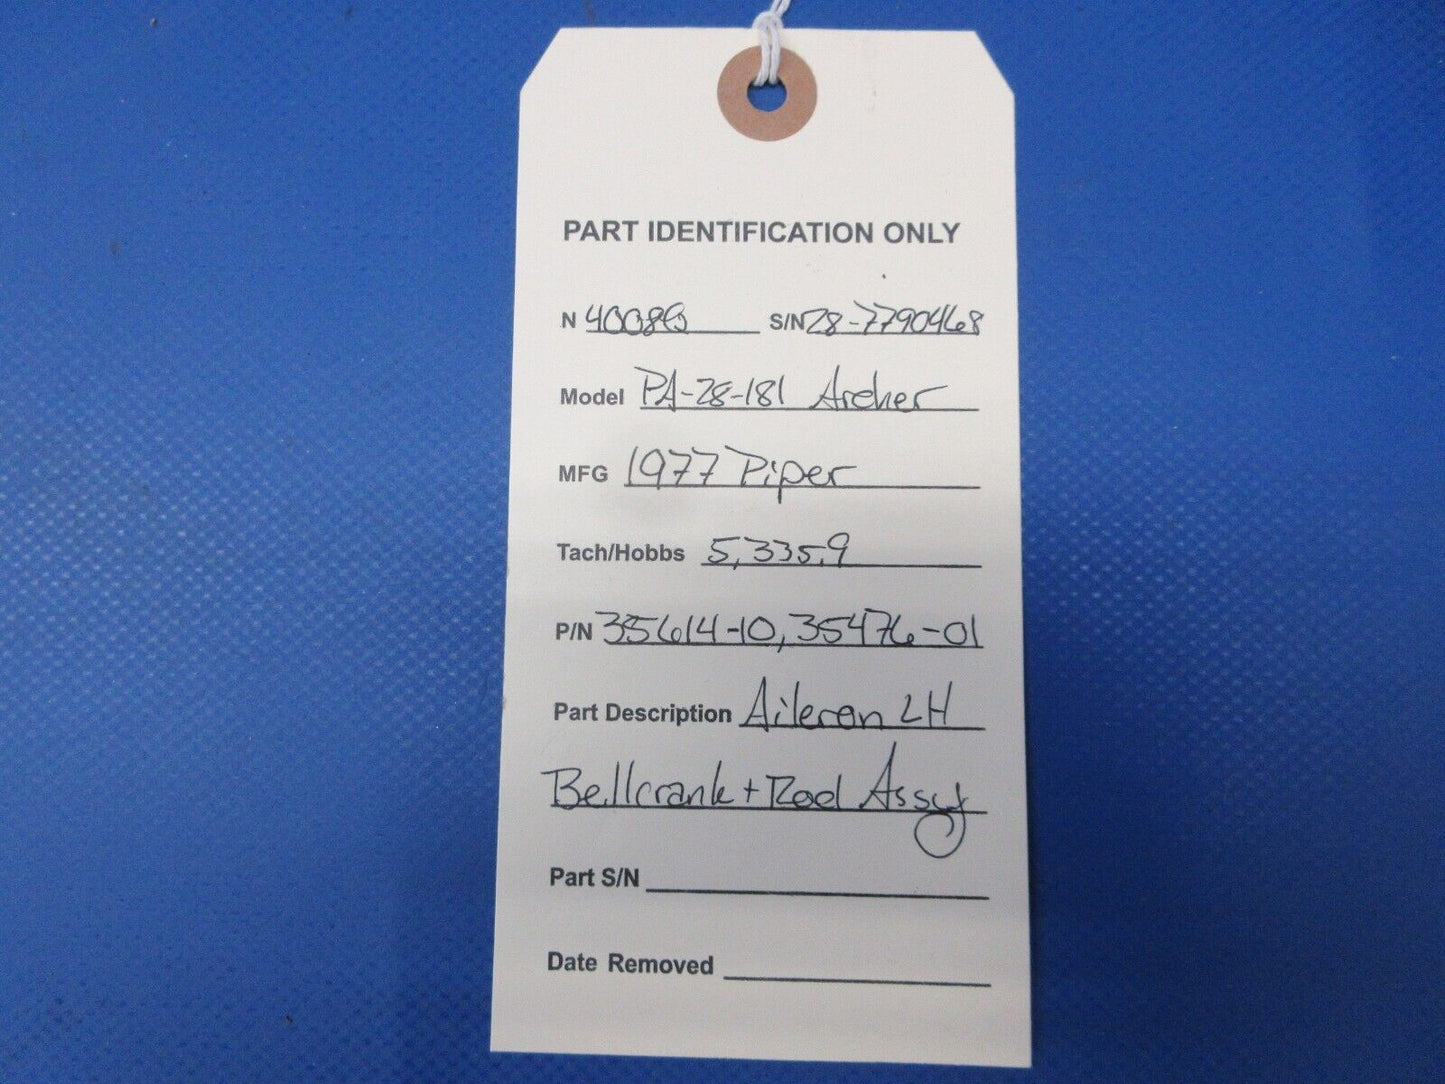 PART IDENTIFICATION ONLY
N 4008Q S/N 28-7790468
Model PA-28-181 Archer
MFG 1977 Piper
Tach/Hobbs 5,335.9
P/N 35614-10, 35476-01
Part Description Aileron LH
Bellcrank + Rod Assy
Part S/N
Date Removed